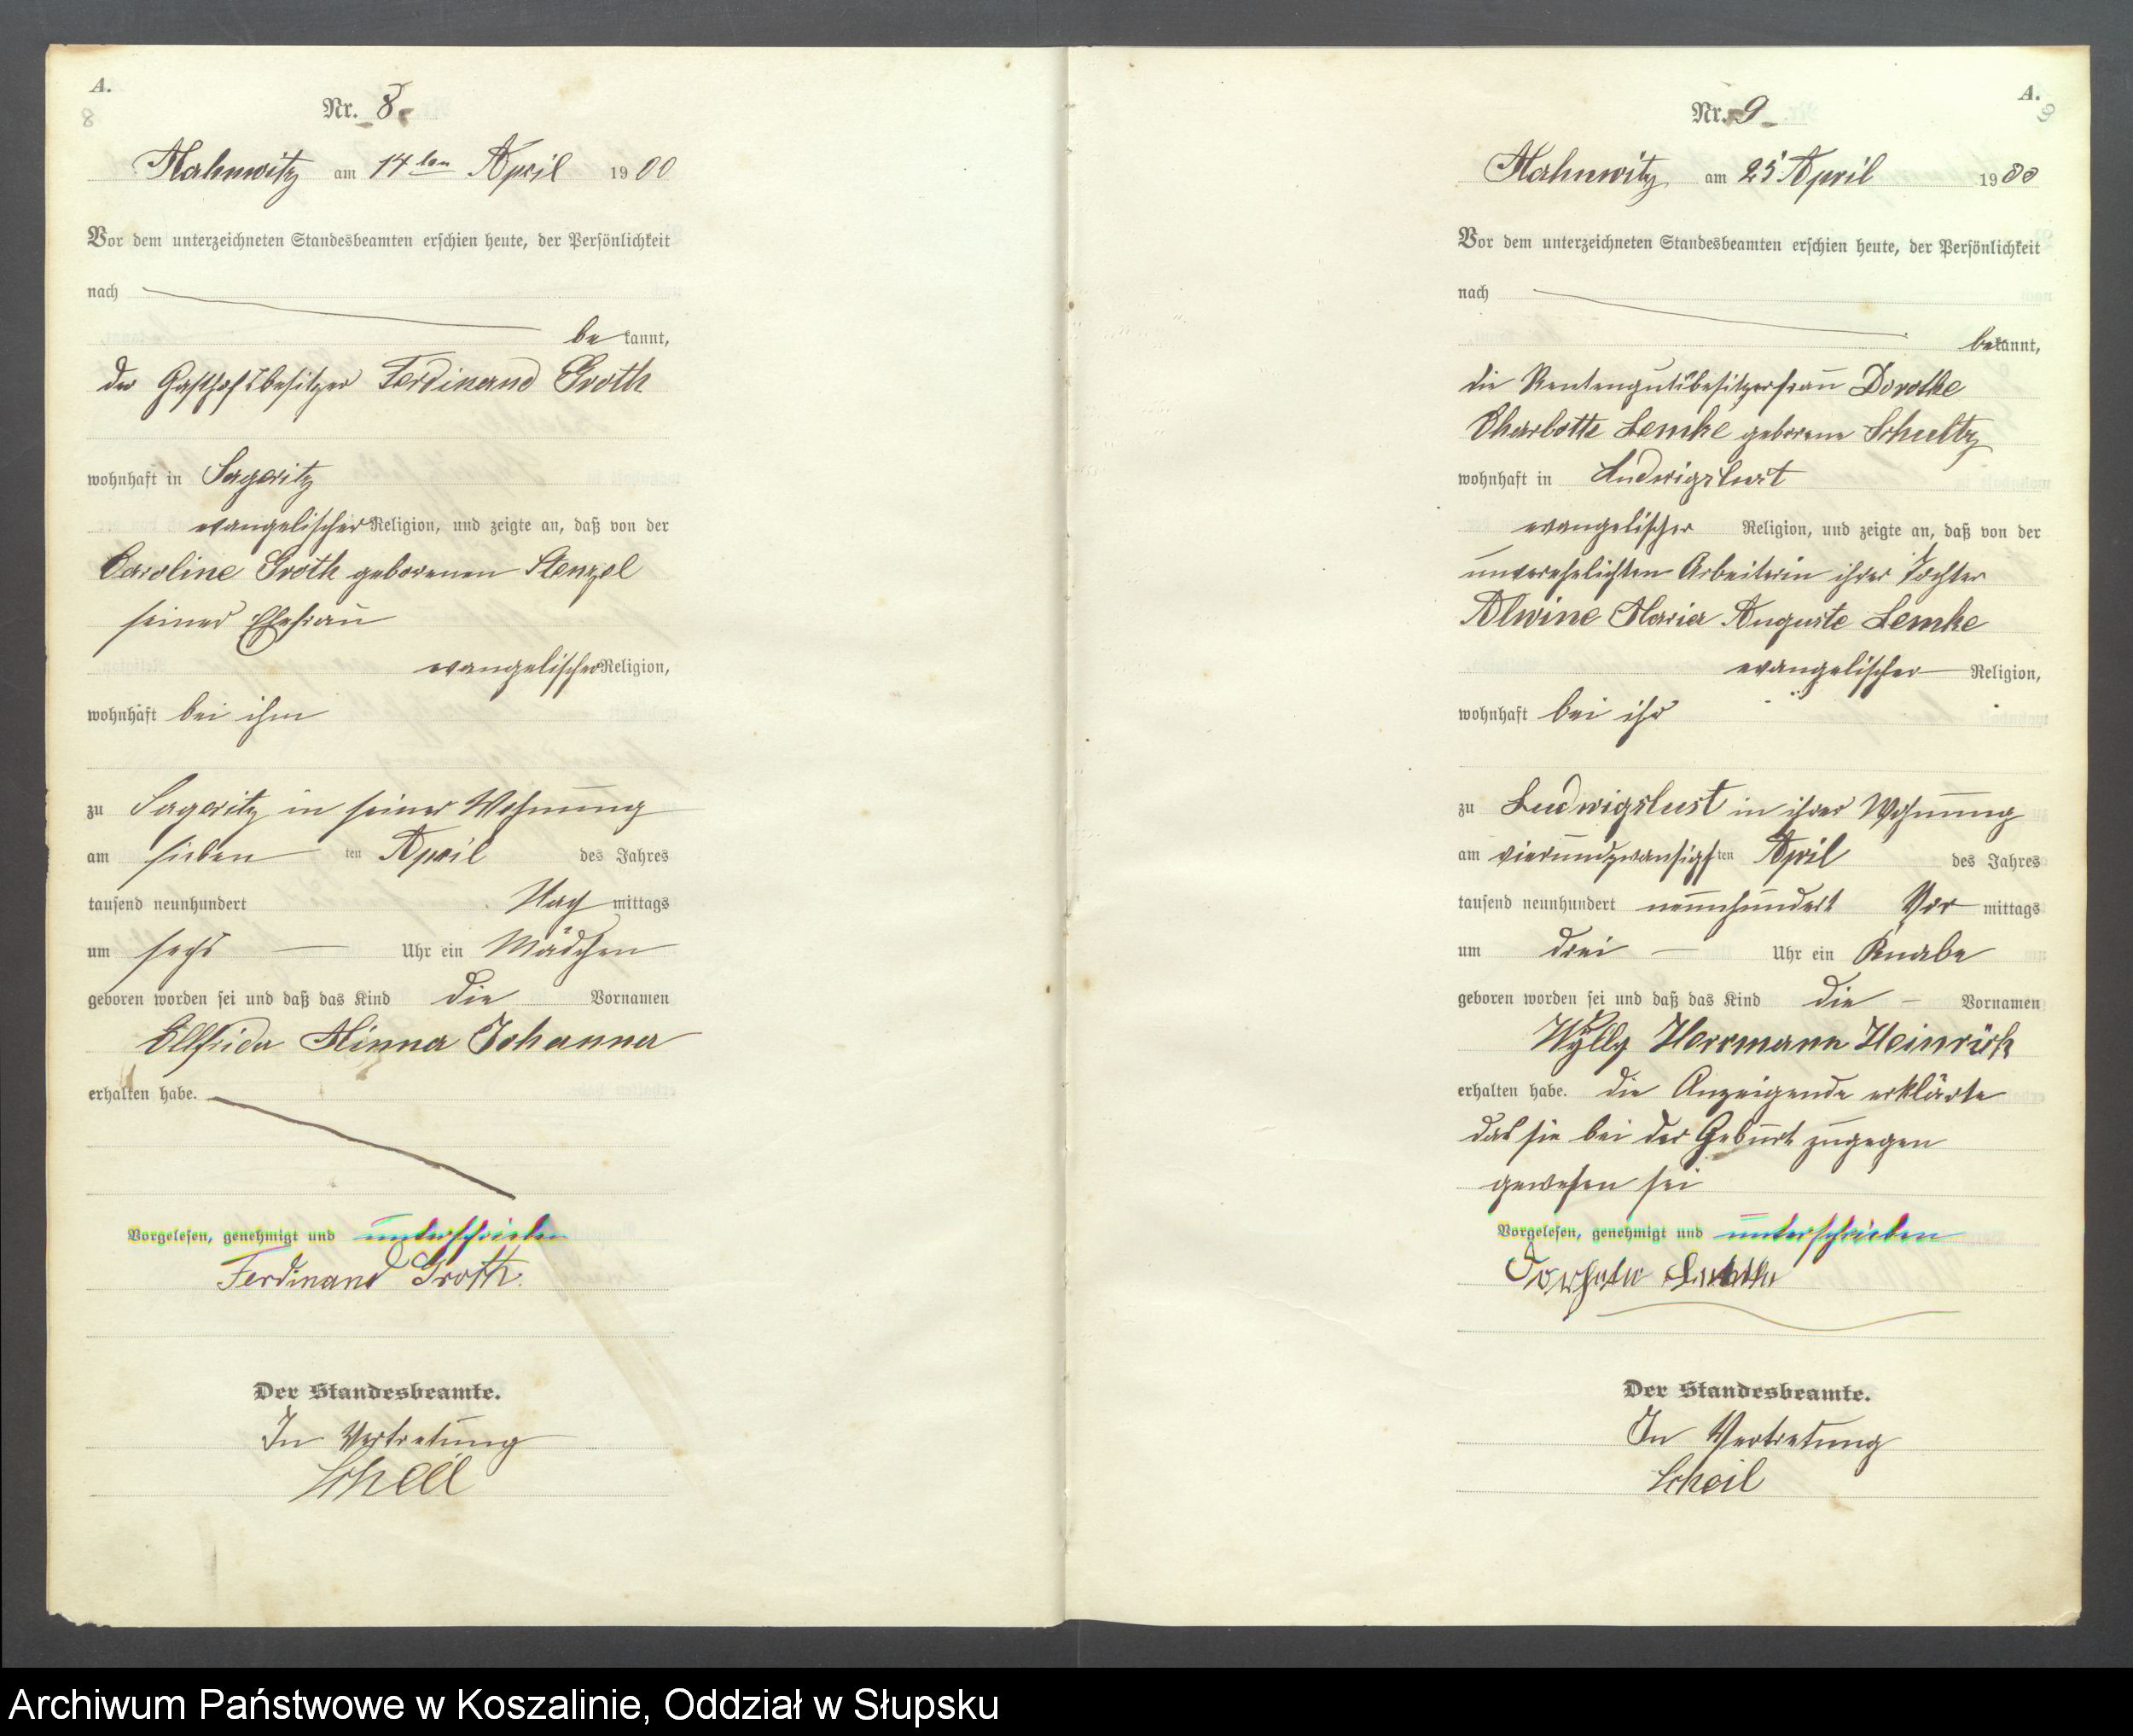 A.
8
Nr. 8.
Mahnwitz am 14ten April 1900
Vor dem unterzeichneten Standesbeamten erschien heute, der Persönlichkeit
nach
be kannt,
der Gasthofsbesitzer Ferdinand Groth
wohnhaft in Sageritz
evangelischer Religion, und zeigte an, daß von der
Caroline Groth geborenen Stenzel
seiner Ehefrau
evangelischer Religion,
wohnhaft bei ihm
zu Sageritz in seiner Wohnung
am sieben ten April des Jahres
tausend neunhundert Nach mittags
um sechs Uhr ein Mädchen
geboren worden sei und daß das Kind die Vornamen
Ellfrida Minna Johanna
erhalten habe.
Vorgelesen, genehmigt und unterschrieben
Ferdinand Groth.
Der Standesbeamte.
In Vertretung
Scheil
A.
9
Nr. 9
Mahnwitz am 25 April 1900
Vor dem unterzeichneten Standesbeamten erschien heute, der Persönlichkeit
nach
bekannt,
die Rentengutsbesitzerfrau Dorothe
Charlotte Lemke geborene Schultz
wohnhaft in Ludwigslust
evangelischer Religion, und zeigte an, daß von der
unverehelichten Arbeiterin ihrer Tochter
Alwine Maria Auguste Lemke
evangelischer Religion,
wohnhaft bei ihr
zu Ludwigslust in ihrer Wohnung
am vierundzwansigsten April des Jahres
tausend neunhundert neunhundert Vor mittags
um drei Uhr ein Knabe
geboren worden sei und daß das Kind die Vornamen
Wylly Herrmann Heinrich
erhalten habe. die Anzeigende erklärte
das sie bei der Geburt zugegen
gewesen sei
Vorgelesen, genehmigt und unterschrieben
Der Standesbeamte.
In Vertretung
Scheil
Archiwum Państwowe w Koszalinie, Oddział w Słupsku